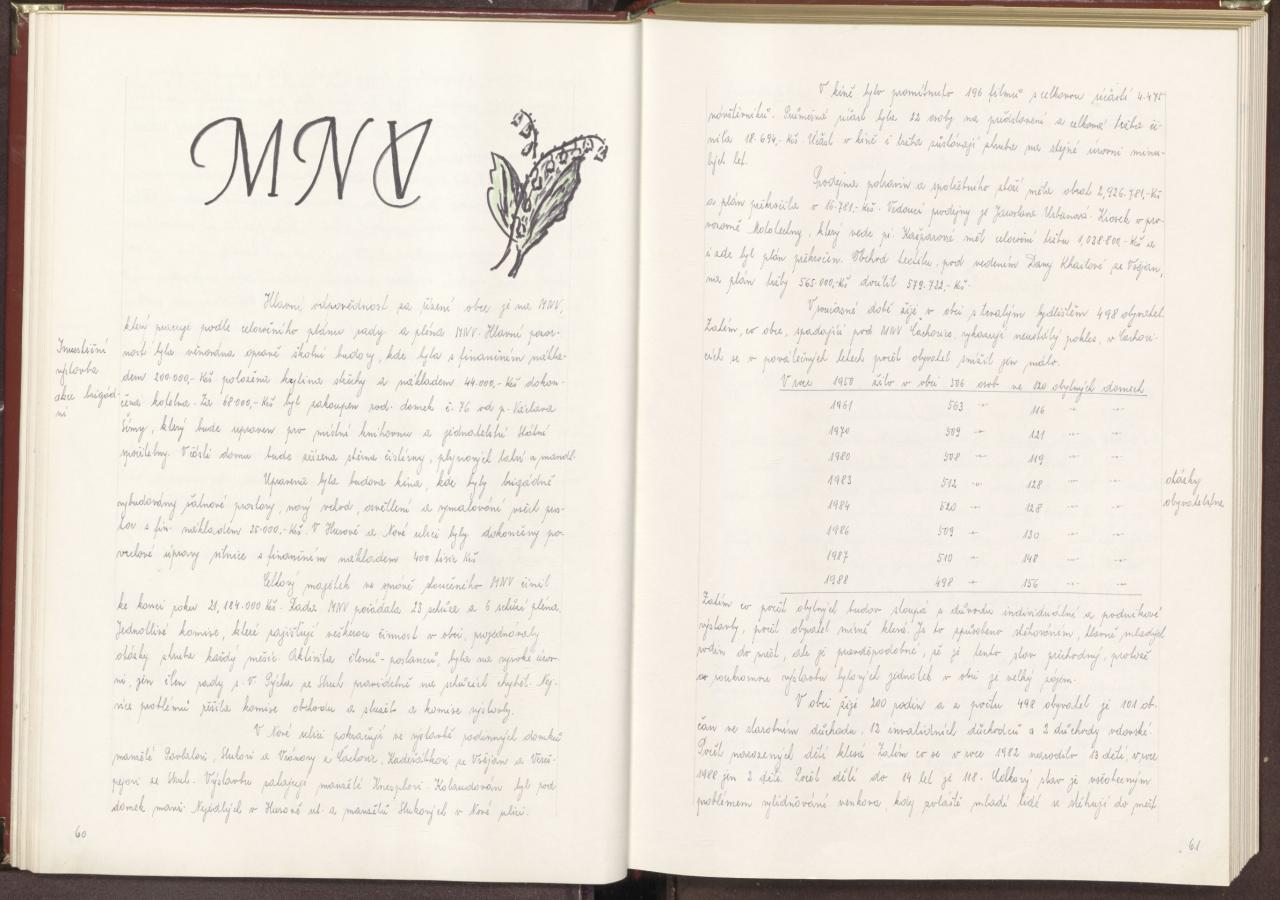 MNV
Hlavní odpovědnost za řízení obce je na MNV,
který pracuje podle celoročního plánu rady a pléna MNV. Hlavní pozor-
Investiční
výstavba
akce brigád-
ní
nost byla věnována opravě školní budovy, kde byla s finančním nákla-
dem 200.000,- Kčs položena krytina střechy a nákladem 44.000,- Kčs dokon-
čena kotelna. Za 68.000,- Kčs byl zakoupen rod. domek č. 76 od p. Václava
který bude upraven pro místní knihovnu a jednatelství Státní
spořitelny. V části domu bude zřízena sběrna čistírny, plynových lahví a mandl.
Upravena byla budova kina, kde byly brigádně
vybudovány šatnové prostory, nový vchod, osvětlení a vymalování všech pros-
tor s fin. nákladem 35.000,- Kčs. V Husově a Nové ulici byly dokončeny po-
vrchové úpravy silnice s finančním nákladem 400 tisíc Kčs
Celkový majetek ve správě sloučeného MNV činil
ke konci roku 21,184.000 Kčs. Rada MNV pořádala 23 schůze a 6 schůzí pléna.
Jednotlivé komise, které zajišťují veškerou činnost v obci, projednávaly
otázky zhruba každý měsíc. Aktivita členů - poslanců, byla na vysoké úrov-
ni, jen člen rady s. V. Pýcha ze Struh pravidelně na schůzích chyběl. Nej-
více problémů řešila komise obchodu a služeb a komise výstavby.
V Nové ulici pokračují ve výstavbě rodinných domků
manželé a z Čachovic, ze Všejan a
ze Struh. Výstavbu zahajují manželé Knesplovi. Kolaudován byl rod.
domek manž. Nejedlých v Husově ul. a manželů v Nové ulici.
60
V kině bylo promítnuto 196 filmů s celkovou účastí 4.475
návštěvníků. Průměrná účast byla 22 osoby na představení a celková tržba či-
nila 18.694,- Kčs. Účast v kině i tržba zůstávají zhruba na stejné úrovni minu-
lých let.
Prodejna potravin a spotřebního zboží měla obrat 2,926.781,- Kčs
a plán překročila o 16.781,- Kčs. Vedoucí prodejny je Jaroslava Urbanová. Kiosek v pro-
vozovně Mototechny, který vede pí. Kašparová měl celoroční tržbu 1,038.800,- Kčs a
i zde byl plán překročen. Obchod textilu, pod vedením Dany ze Všejan,
na plán tržby 565.000,- Kčs docílil 579.722,- Kčs.
V současné době žije v obci s trvalým bydlištěm 498 obyvatel.
Zatím, co obce, spadající pod MNV Čachovice, vykazují neustálý pokles, v Čachovi-
cích se v poválečných letech počet obyvatel snížil jen málo.
V roce 1950 žilo v obci 506 osob ve 120 obytných domech
1961 563 -"- 116 -"- -"-
1970 509 -"- 121 -"- -"-
1980 508 -"- 119 -"- -"-
1983 512 -"- 128 -"- -"-
1984 520 -"- 128 -"- -"-
1986 509 -"- 130 -"- -"-
1987 510 -"- 148 -"- -"-
1988 498 -"- 156 -"- -"-
otázky
obyvatelstva
Zatím co počet obytných budov stoupá z důvodu individuální a podnikové
výstavby, počet obyvatel mírně klesá. Je to způsobeno stěhováním, hlavně mladých
rodin do měst, ale je pravděpodobné, že je tento stav přechodný, protože
o soukromou výstavbu bytových jednotek v obci je velký zájem.
V obci žije 200 rodin a z počtu 498 obyvatel je 101 ob-
čan ve starobním důchodu, 12 invalidních důchodců a 2 důchody vdovské.
Počet narozených dětí klesá. Zatím co se v roce 1982 narodilo 13 dětí, v roce
1988 jen 2 děti. Počet dětí do 14 let je 118. Celkový stav je všeobecným
problémem vylidňování venkova, kdy zvláště mladí lidé se stěhují do měst.
61